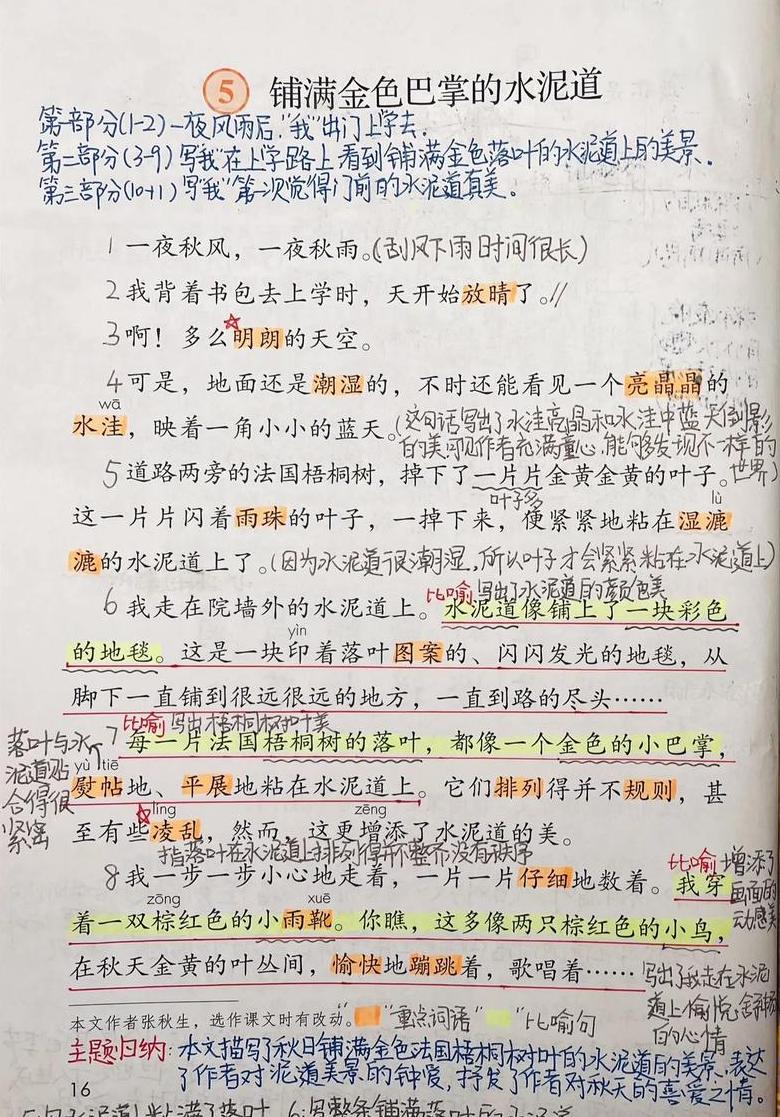 5 铺满金色巴掌的水泥道
第一部分(1-2)一夜风雨后,"我"出门上学去.
第二部分(3-9)写"我"在上学路上看到铺满金色落叶的水泥道上的美景.
第三部分(10-11)写"我"第一次觉得门前的水泥道真美.
1 一夜秋风，一夜秋雨。(刮风下雨时间很长)
2 我背着书包去上学时，天开始放晴了。//
3 啊！多么明朗的天空。
4 可是，地面还是潮湿的，不时还能看见一个亮晶晶的
wā
水洼，映着一角小小的蓝天。(这句话写出了水洼亮晶和水洼中蓝天倒影
的美,可见作者充满童心,能够发现不一样的
世界)
5 道路两旁的法国梧桐树，掉下了一片片金黄金黄的叶子。
叶子多
lù
这一片片闪着雨珠的叶子，一掉下来，便紧紧地粘在湿漉
漉的水泥道上了。(因为水泥道很潮湿,所以叶子才会紧紧粘在水泥道上)
比喻 写出了水泥道的颜色美
6 我走在院墙外的水泥道上。水泥道像铺上了一块彩色
yìn
的地毯。这是一块印着落叶图案的、闪闪发光的地毯，从
脚下一直铺到很远很远的地方，一直到路的尽头……
比喻 写出梧桐树叶美
7 每一片法国梧桐树的落叶，都像一个金色的小巴掌，
落叶与水
泥道贴
合得很
紧密
yù tiē
熨帖地、平展地粘在水泥道上。它们排列得并不规则，甚
líng zēng
至有些凌乱，然而，这更增添了水泥道的美。
指落叶在水泥道上排列得并不整齐没有秩序
8 我一步一步小心地走着，一片一片仔细地数着。我穿
比喻 增添了
画面的
动感美
zōng xuē
着一双棕红色的小雨靴。你瞧，这多像两只棕红色的小鸟，
在秋天金黄的叶丛间，愉快地蹦跳着，歌唱着……
写出了我走在水泥
道上愉悦
的心情
本文作者张秋生，选作课文时有改动。
"重点词语" "比喻句
主题归纳:本文描写了秋日铺满金色法国梧桐树叶的水泥道的美景,表达
了作者对泥道美景的钟爱,抒发了作者对秋天的喜爱之情.
16